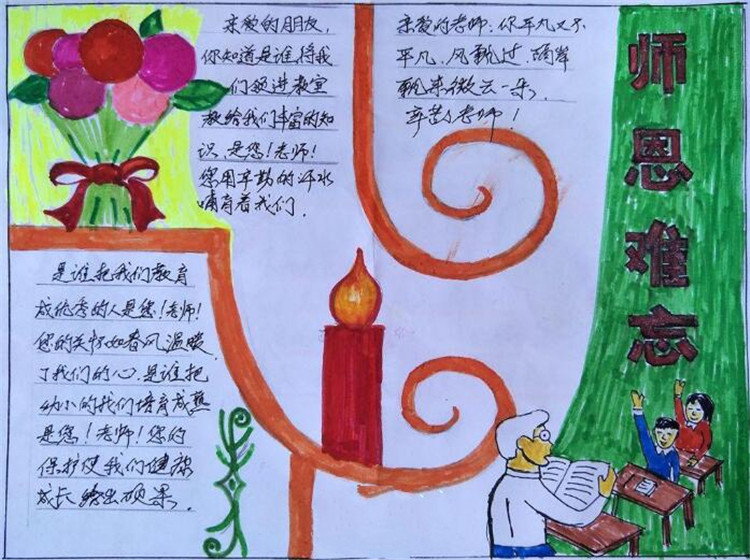 亲爱的朋友,
你知道是谁将我
们领进教室
教给我们丰富的知
识,是您!老师!
您用辛勤的汗水
哺育着我们.
亲爱的老师:你平凡又不
平凡,风飘过,
飘来微云一朵,
辛苦了老师!
师恩难忘
是谁把我们教育
成优秀的人是您!老师!
您的关怀如春风温暖
了我们的心.是谁把
幼小的我们培育成熟
是您!老师!您的
保护使我们健康
成长结出硕果.